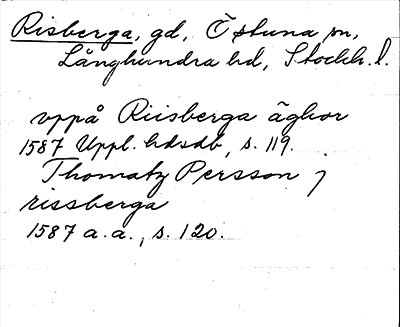 Risberga, gd, Östuna sn,
Långhundra hd, Stockh. l.
vppå Riisberga äghor
1587 Uppl. hdsdb, s. 119.
Thomatz Persson j
rissberga
1587 a.a., s. 120.